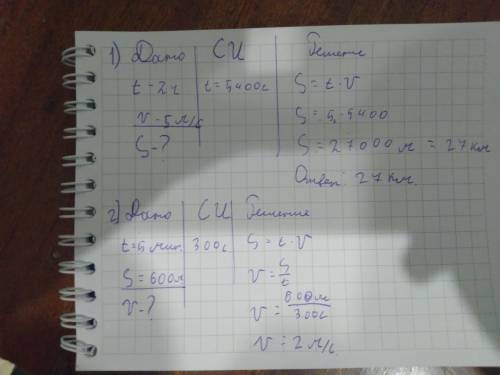 1) Дано СИ Решение
t = 2ч t = 5400с S = t · V
V = 5 м/с S = 5 · 5400
S - ? S = 27000 м = 27 км
Ответ: 27 км.
2) Дано СИ Решение
t = 5 мин. 300с S = t · V
S = 600м V = S/t
V - ? V = 600м/300с
V = 2 м/с